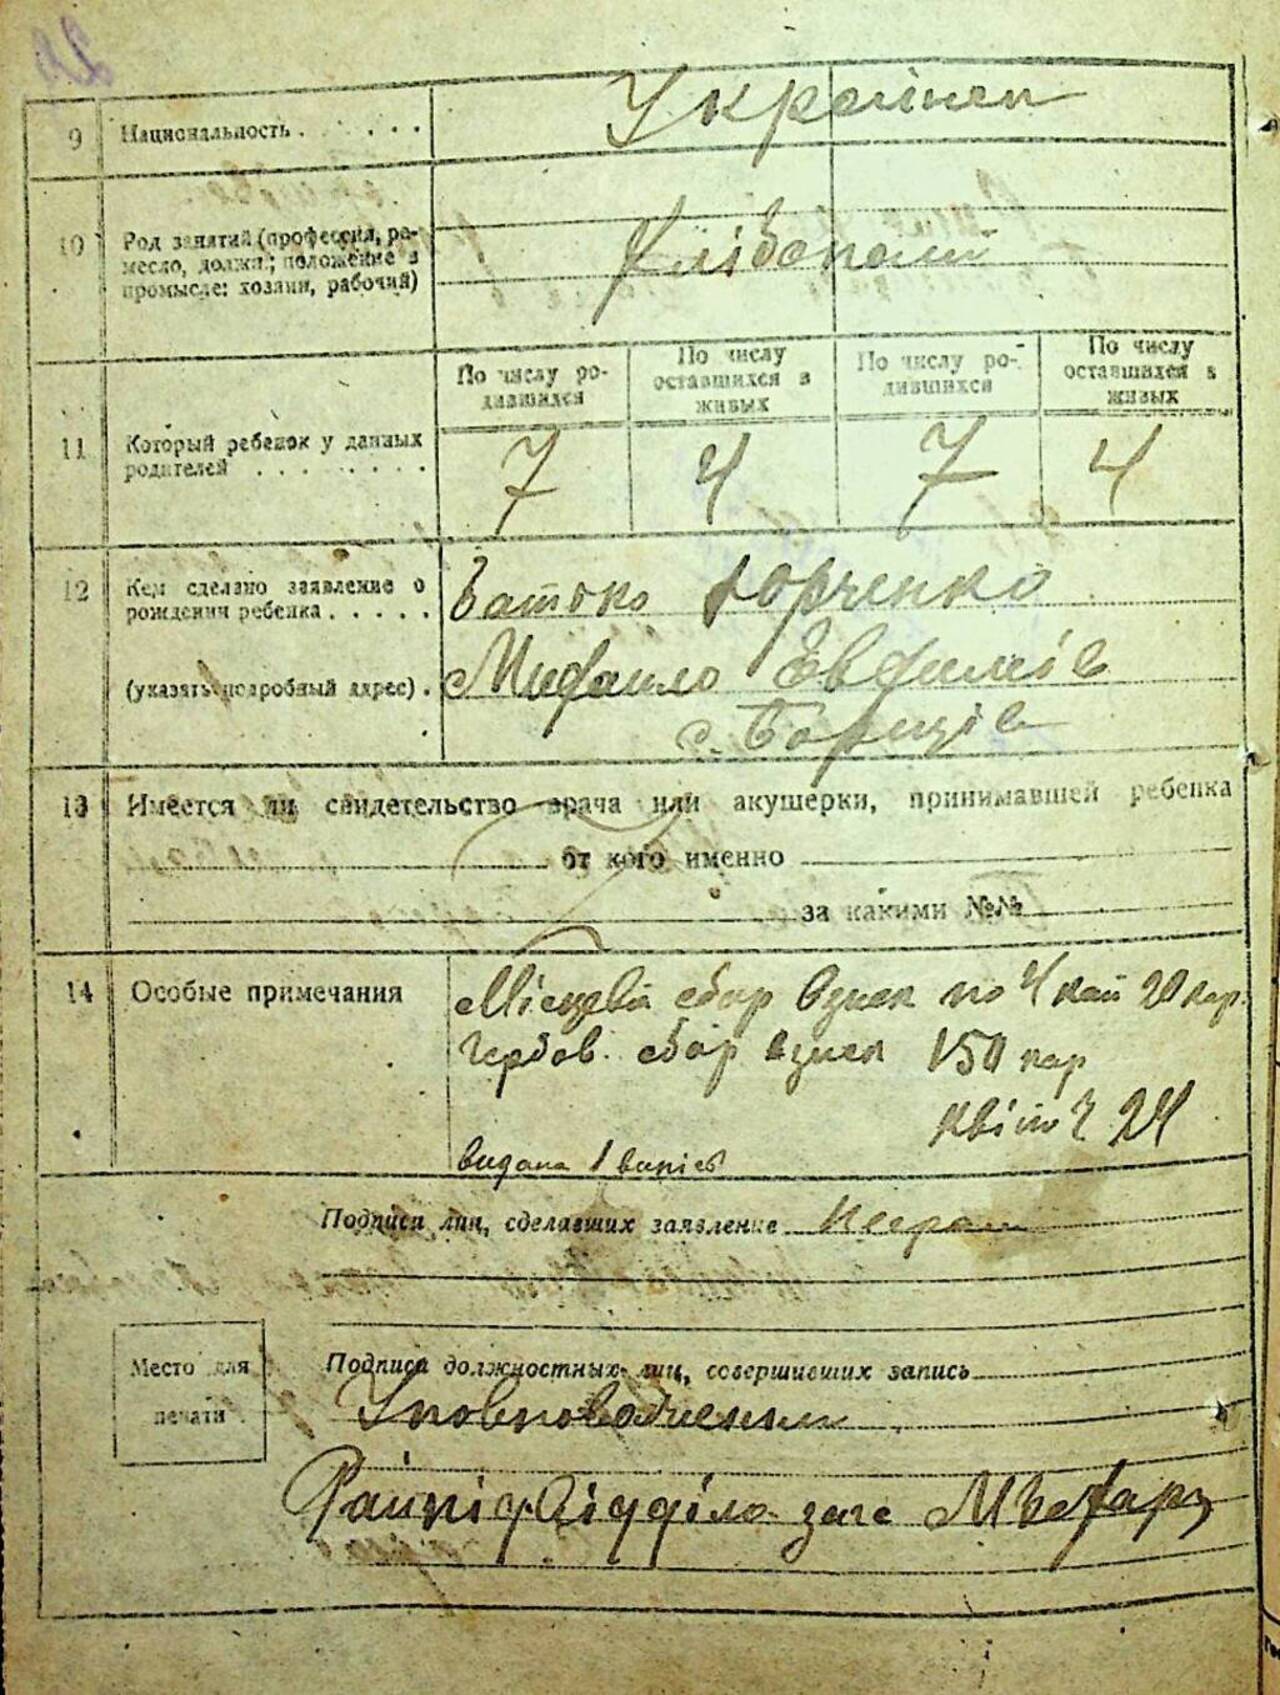 20
9 Национальность . . . . . Українец
10 Род занятий (профессия, ре-
месло, должн; положение в
промысле: хозяин, рабочий) Хлібопаш
По числу ро-
дившихся
По числу
оставшихся в
живых
По числу ро-
дившихся
По числу
оставшихся в
живых
11 Который ребенок у данных
родителей . . . . . . . . 7 4 7 4
12 Кем сделано заявление о
рождении ребенка . . . . . Батько Юрченко
(указать подробный адрес) . Михайло Евфимів
с. Борщів
13 Имеется ли свидетельство врача или акушерки, принимавшей ребенка
от кого именно
за какими №№
14 Особые примечания Місцевий сбор взиск по 4 кай 20 кар
Гербов. сбор взиск 150 кар
Квіт ч 24
видана 1 випись
Подписи лиц, сделавших заявление
Место для
печати
Подписи должностных лиц, совершивших запись
Уповноважений
Райпідвідділа загс